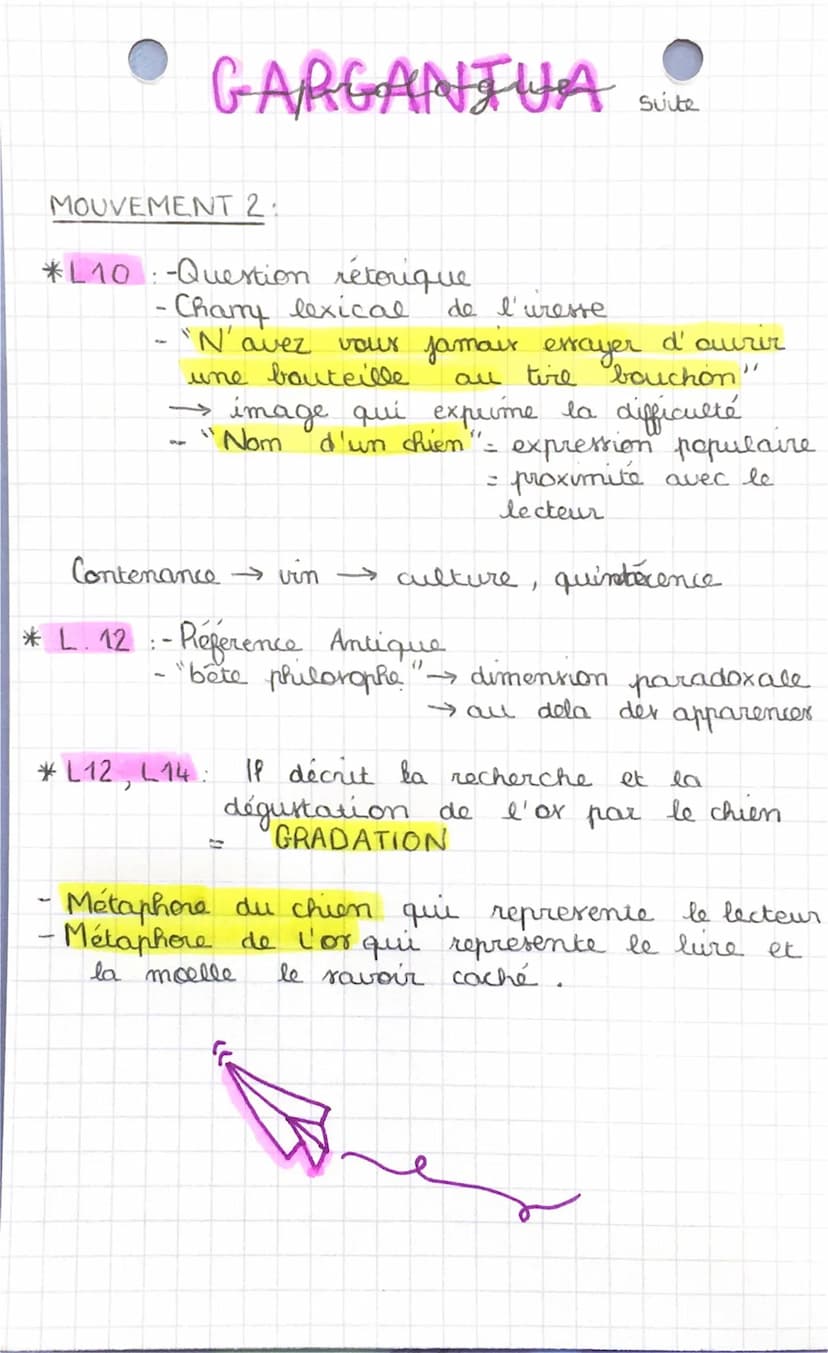 GARGANTUA
prologue
suite
MOUVEMENT 2 :
* L10 : - Question rétorique
- Champ lexical de l'ivresse
- "N'avez vous jamais essayer d'ouvrir
une bouteille au tire bouchon"
→ image qui exprime la difficulté
- "Nom d'un chien" = expression populaire
= proximité avec le
lecteur
Contenance → vin → culture, quintécence
* L. 12 : - Référence Antique
- "bête philosophe" → dimension paradoxale
→ au dela des apparences
* L12, L14 : Il décrit la recherche et la
dégustation de l'os par le chien
= GRADATION
- Métaphore du chien qui represente le lecteur
- Métaphore de l'os qui represente le livre et
la moelle le savoir caché .